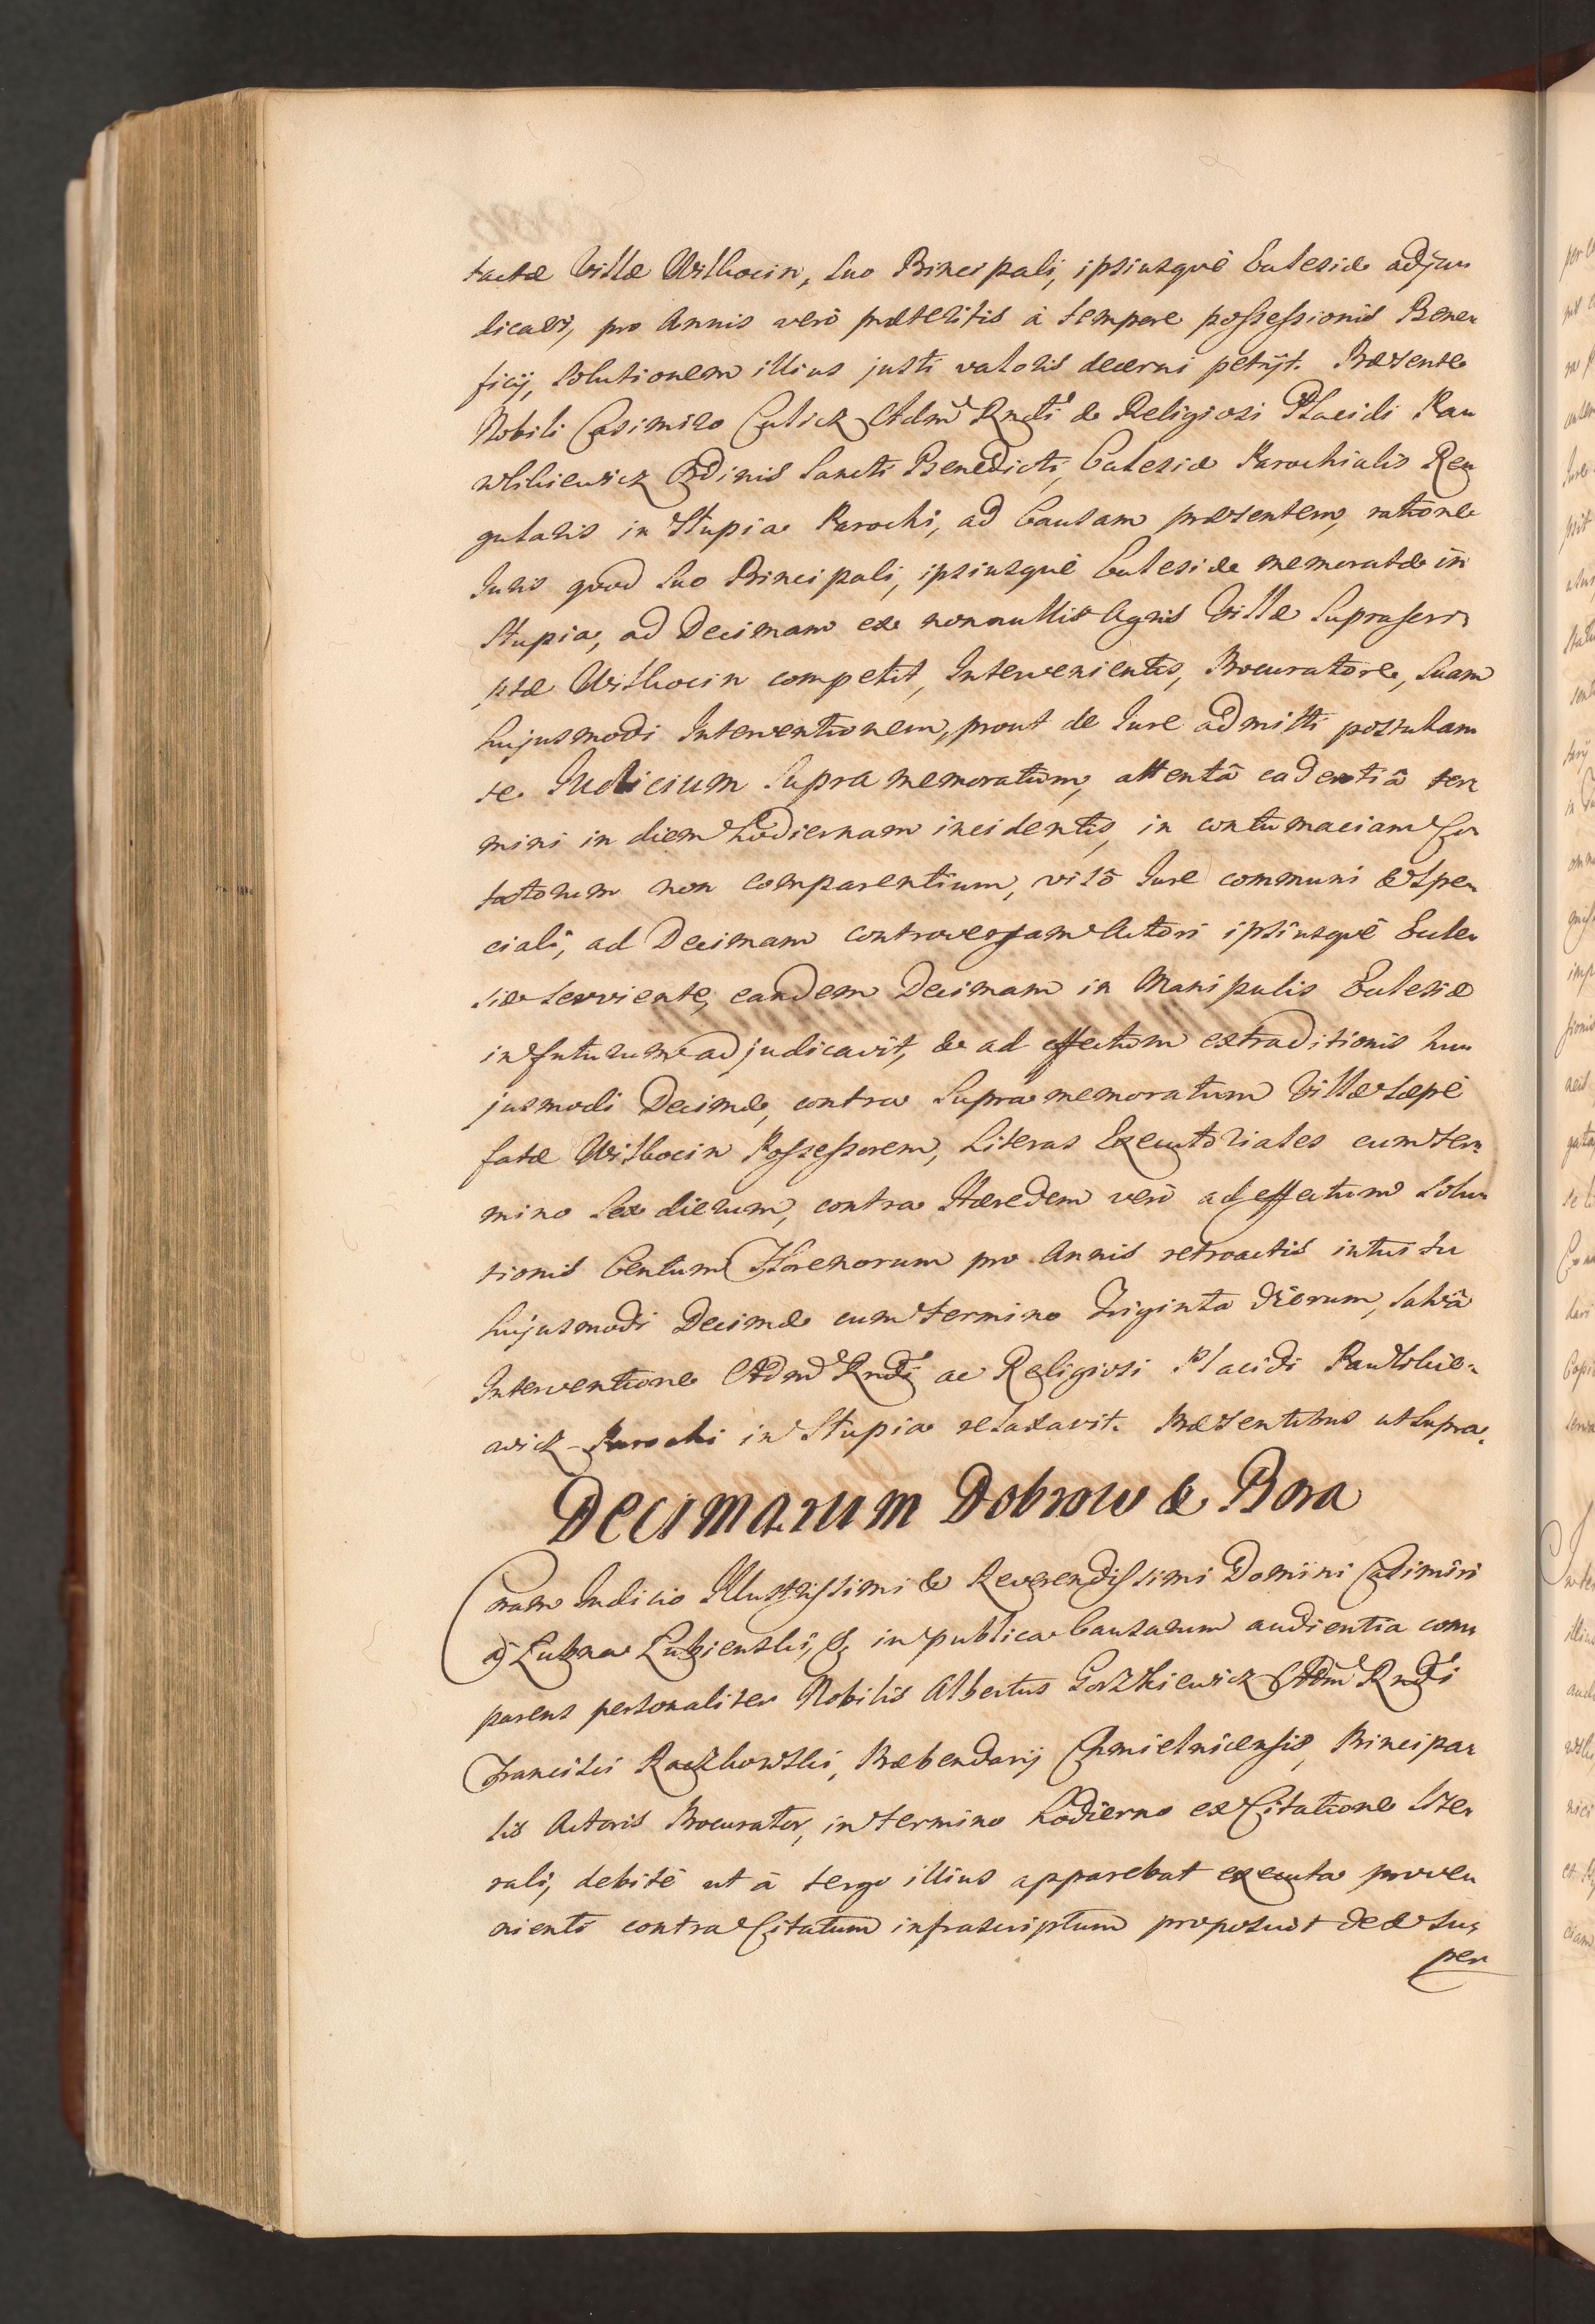 tactæ Villæ Witkocin, Suo Principali, ipsiusquè Ecclesiæ adju-
dicari, pro Annis verò præteritis à tempore possessionis Bene-
ficij, Solutionem illius justi valoris decerni petijt. Præsente
Nobili Casimiro Culick Adm Rndi & Religiosi Placidi Ra-
wskiewicz Ordinis Sancti Benedicti, Ecclesiæ Parochialis Re-
gularis in Stupia Parochi, ad Causam præsentem, ratione
Juris quod Suo Principali, ipsiusquè Ecclesiæ memoratæ in
Stupia, ad Decimam ex nonnullis Agris Villæ Suprascri-
ptæ Witkocin competit, Intervenientis, Procuratore, Suam
hujusmodi Interventionem, prout de Jure admitti postulan-
te. Judicium Supra memoratum, attentâ cadentiâ ter-
mini in diem hodiernam incidentis, in contumaciam Ci-
tatorum non comparentium, visô Jure communi & Spe-
ciali, ad Decimam controversam Actori ipsiusquè Eccle-
siæ Serviente, eandem Decimam in Manipulis Ecclesiæ
in futurum adjudicavit, & ad effectum extraditionis hu-
jusmodi Decimæ, contra Supra memoratum Villæ Sæpè
fatæ Witkocin Possessorem, Literas Executoriales cum ter-
mino Sex dierum, contra Hæredem verò ad effectum Solu-
tionis Centum Florenorum pro Annis retroactis intuitu
hujusmodi Decimæ cum termino Triginta dierum, Salvâ
Interventione Adm Rndi ac Religiosi Placidi Rawskie-
wicz Parochi in Stupia relaxavit. Præsentibus ut Supra.
Decimarum Dobrow & Bora
Coram Judicio Illustrissimi & Reverendissimi Domini Casimiri
à Łubna Łubienski, &c in publica Causarum audientia com-
parens personaliter Nobilis Albertus Gorzkiewicz Adm Rndi
Francisci Raczkowski, Præbendarij Chmielnicensis, Principa-
lis Actoris Procurator, in termino hodierno ex Citatione Lite-
rali, debitè ut à tergo illius apparebat executa prove-
nienti contra Citatum infrascriptum proposuit de & Su-
per